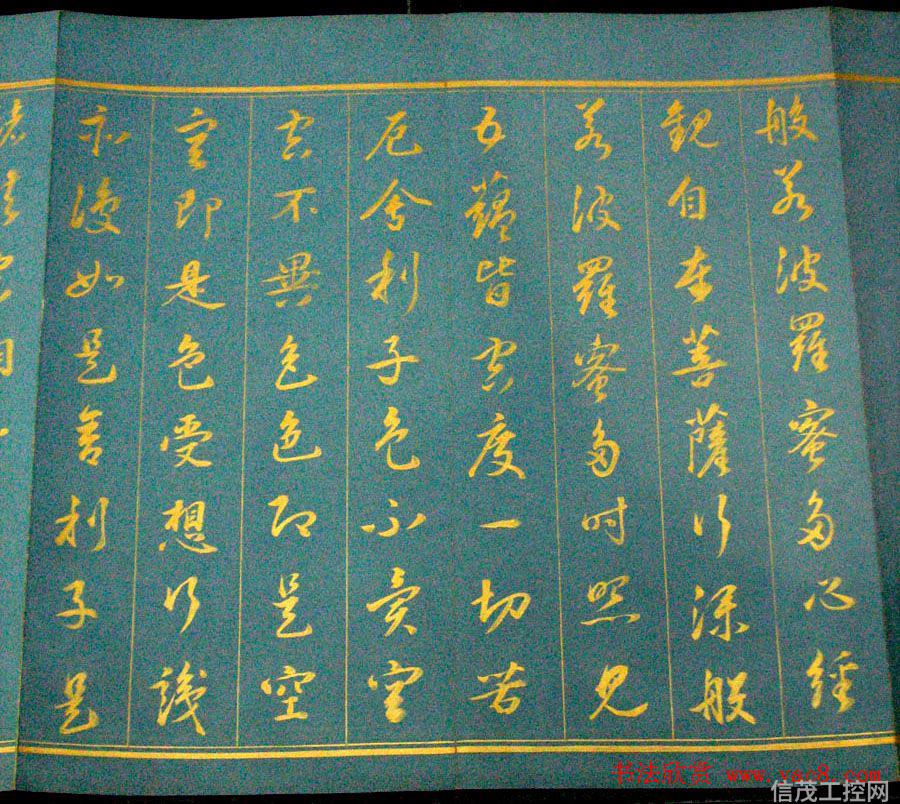 般若波羅蜜多心經
觀自在菩薩行深般
若波羅蜜多時照見
五蘊皆空度一切苦
厄舍利子色不異空
空不異色色即是空
空即是色受想行識
亦復如是舍利子是
諸法空相
书法欣赏 www.yac8.com
信茂工控网